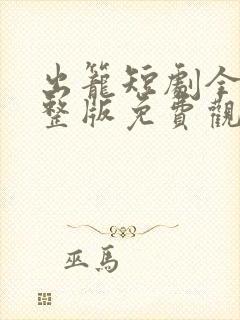 出籠短劇全
整版免費觀
巫馬